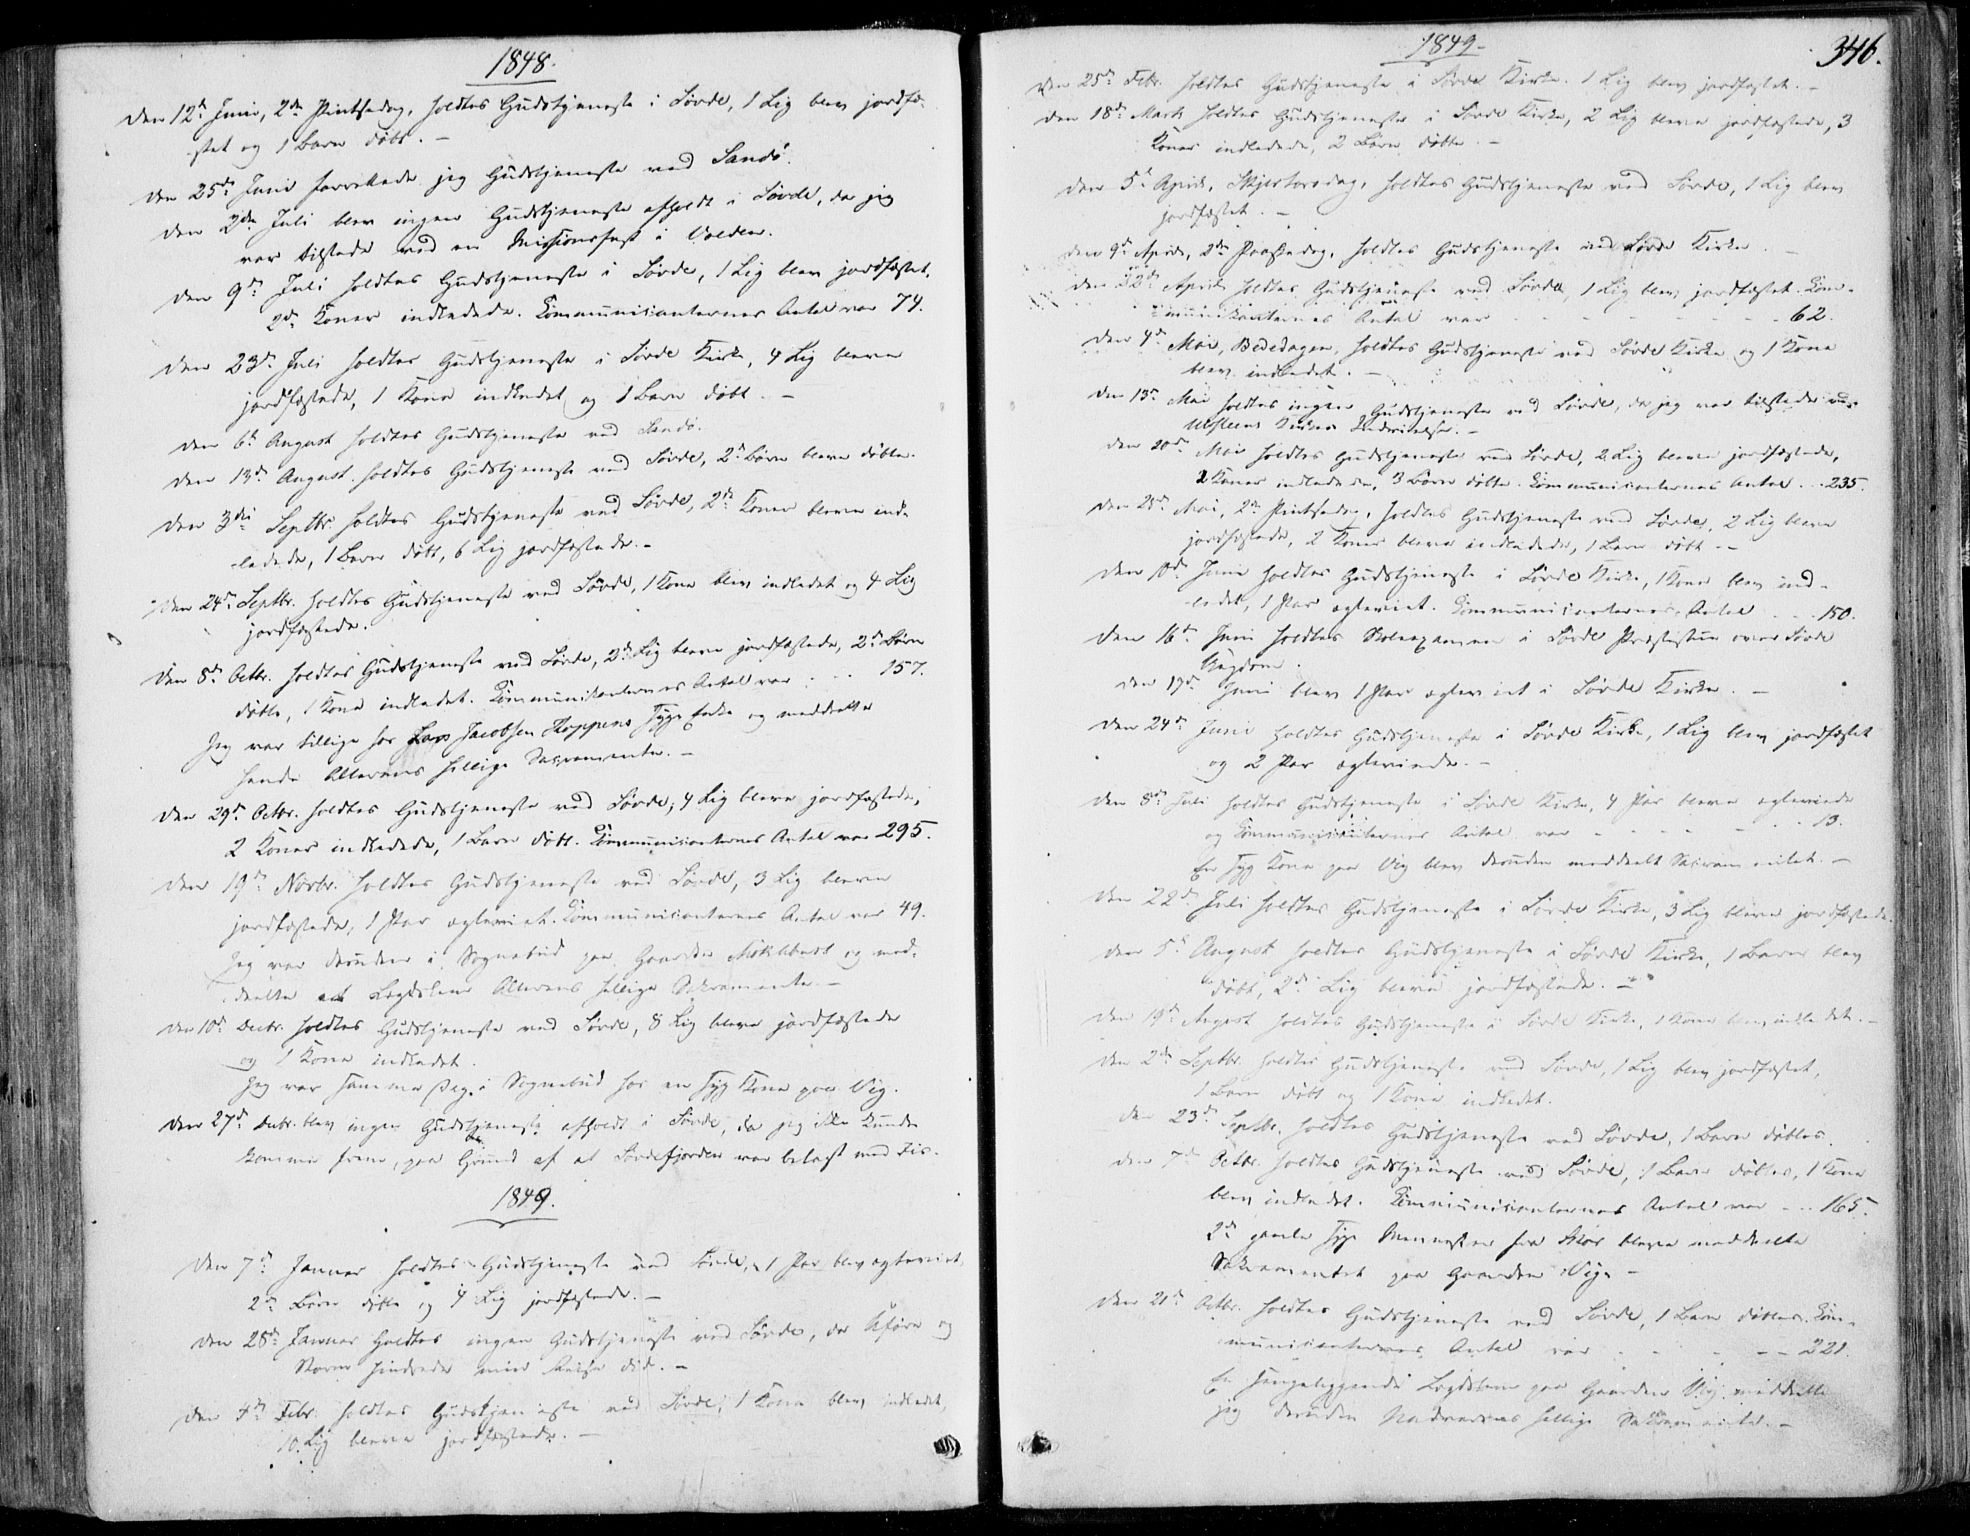 1848.
Den 12te Junii, 2den Pintsedag, holdtes Gudstjeneste i Sövde, 1 Lig blev jordfæ-
stet og 1 Barn döbt. -
Den 25de Junii forrettede jeg Gudstjeneste ved Sandö.
Den 2den Juli blev ingen Gudstjeneste afholdt i Sövde, da jeg
var tilstede ved en Missionsfest i Volden.
Den 9de Juli holdtes Gudstjeneste i Sövde, 1 Lig blev jordfæstet,
2de Koner indledede. Communicanternes Antal var 74.
Den 23de Juli holdtes Gudstjeneste i Sövde Kirke, 4 Lig bleve
jordfæstede, 1 Kone indledet og 1 Barn döbt. -
Den 6te August holdtes Gudstjeneste ved Sandö.
Den 13de August holdtes Gudstjeneste ved Sövde, 2de Börn bleve döbte.
Den 3die Septbr. holdtes Gudstjeneste ved Sövde, 2de Koner bleve ind-
ledede, 1 Barn döbt, 6 Lig jordfæstede. -
Den 24de Septbr. holdtes Gudstjeneste ved Sövde, 1 Kone blev indledet og 4 Lig
jordfæstede.
Den 8de Octbr. holdtes Gudstjeneste ved Sövde, 2de Lig bleve jordfæstede, 2de Börn
döbte, 1 Kone indledet. Communicanternes Antal var . . . 157.
Jeg var tillige hos Lars Jacobsen Koppens syge Enke og meddelte
hende Alterens hellige Sacramente. -
Den 29de Octbr. holdtes Gudstjeneste ved Sövde, 4 Lig bleve jordfæstede,
2 Koner indledede, 1 Barn döbt. Communicanternes Antal var 295.
Den 19de Novbr. holdtes Gudstjeneste ved Sövde, 3 Lig bleve
jordfæstede, 1 Par ægteviet. Communicanternes Antal var 49.
Jeg var desuden i Sognebud paa Gaarden og med-
deelte Lægdslem Alterens hellige Sakramente. -
Den 10de Decbr. holdtes Gudstjeneste ved Sövde, 8 Lig bleve jordfæstede
og 1 Kone indledet.
Jeg var samme Dag i Sognebud hos en syg Kone paa Vig.
Den 27de Decbr. blev ingen Gudstjeneste afholdt i Sövde, da jeg ikke kunde
komme frem, paa Grund af at Sövdefjorden var belagt med Iis.
1849.
Den 7de Januar holdtes Gudstjeneste ved Sövde, 1 Par blev ægteviet,
2de Börn döbte og 4 Lig jordfæstede. -
Den 28de Januar holdtes ingen Gudstjeneste ved Sövde, da Uföre og
Storm hindrede min Reise did. -
Den Febr. holdtes Gudstjeneste ved Sövde, 1 Kone blev indledet,
10 Lig bleve jordfæstede. -
1849.
346.
Den 25de Febr. holdtes Gudstjeneste i Sövde Kirke. 1 Lig blev jordfæstet. -
Den 18de Marts holdtes Gudstjeneste i Sövde Kirke, 2 Lig bleve jordfæstede, 3
Koner indledede, 2 Börn döbte. -
Den 5te April, Skjertorsdag, holdtes Gudstjeneste ved Sövde, 1 Lig blev
jordfæstet. -
Den 9de April, 2den Paaskedag, holdtes Gudstjeneste ved Sövde Kirke.
Den 22de April holdtes Gudstjeneste ved Sövde, 1 Lig blev jordfæstet. Com-
municanternes Antal var - - - 62.
Den 4de Mai, Bededagen, holdtes Gudstjeneste ved Sövde Kirke og 1 Kone
blev indledet. -
Den 13de Mai holdtes ingen Gudstjeneste ved Sövde, da jeg var tilstede ved
Ulsteens Kirkes Indvielse. -
Den 20de Mai holdtes Gudstjeneste ved Sövde, 2 Lig bleve jordfæstede,
2 Koner indledede, 3 Börn döbte. Communicanternes Antal . . 235.
Den 28de Mai, 2den Pintsedag, holdtes Gudstjeneste ved Sövde, 2 Lig bleve
jordfæstede, 2 Koner bleve indledede, 1 Barn döbt. -
Den 10de Junii holdtes Gudstjeneste i Sövde Kirke, 1 Kone blev ind-
ledet, 1 Par ægteviet. Communicanternes Antal . . . 150.
Den 16de Juni holdtes Skoleexamen i Sövde Præstestue over Sövde
Ungdom.
Den 17de Juni blev 1 Par ægteviet i Sövde Kirke. -
Den 24de Junii holdtes Gudstjeneste i Sövde Kirke, 1 Lig blev jordfæstet
og 2 Par ægteviede. -
Den 8de Juli holdtes Gudstjeneste i Sövde Kirke, 4 Par bleve ægteviede
og Communicanternes Antal var - - - - 13.
En syg Kone paa Vig blev desuden meddeelt Sacramentet. -
Den 22de Juli holdtes Gudstjeneste i Sövde Kirke, 3 Lig bleve jordfæstede.
Den 5te August holdtes Gudstjeneste i Sövde Kirke, 1 Barn blev
döbt, 2de Lig bleve jordfæstede. -
Den 19de August holdtes Gudstjeneste i Sövde Kirke, 1 Kone blev indledet. -
Den 2den Septbr. holdtes Gudstjeneste ved Sövde, 1 Lig blev jordfæstet,
1 Barn döbt og 1 Kone indledet.
Den 23de Septbr. holdtes Gudstjeneste ved Sövde, 1 Barn döbtes.
Den 7de Octbr. holdtes Gudstjeneste ved Sövde, 1 Barn döbtes, 1 Kone
blev indledet. Communicanternes Antal var - . . 165.
2de gamle syge Mennesker fra bleve meddeelte
Sakramentet paa Gaarden Vig. -
Den 21de Octbr. holdtes Gudstjeneste ved Sövde, 1 Barn döbtes. Com-
municanternes Antal var - - - 221.
En sengeliggende Lægdslem paa Gaarden Vig meddelte
jeg desuden Nadverens hellige Sakramente. -